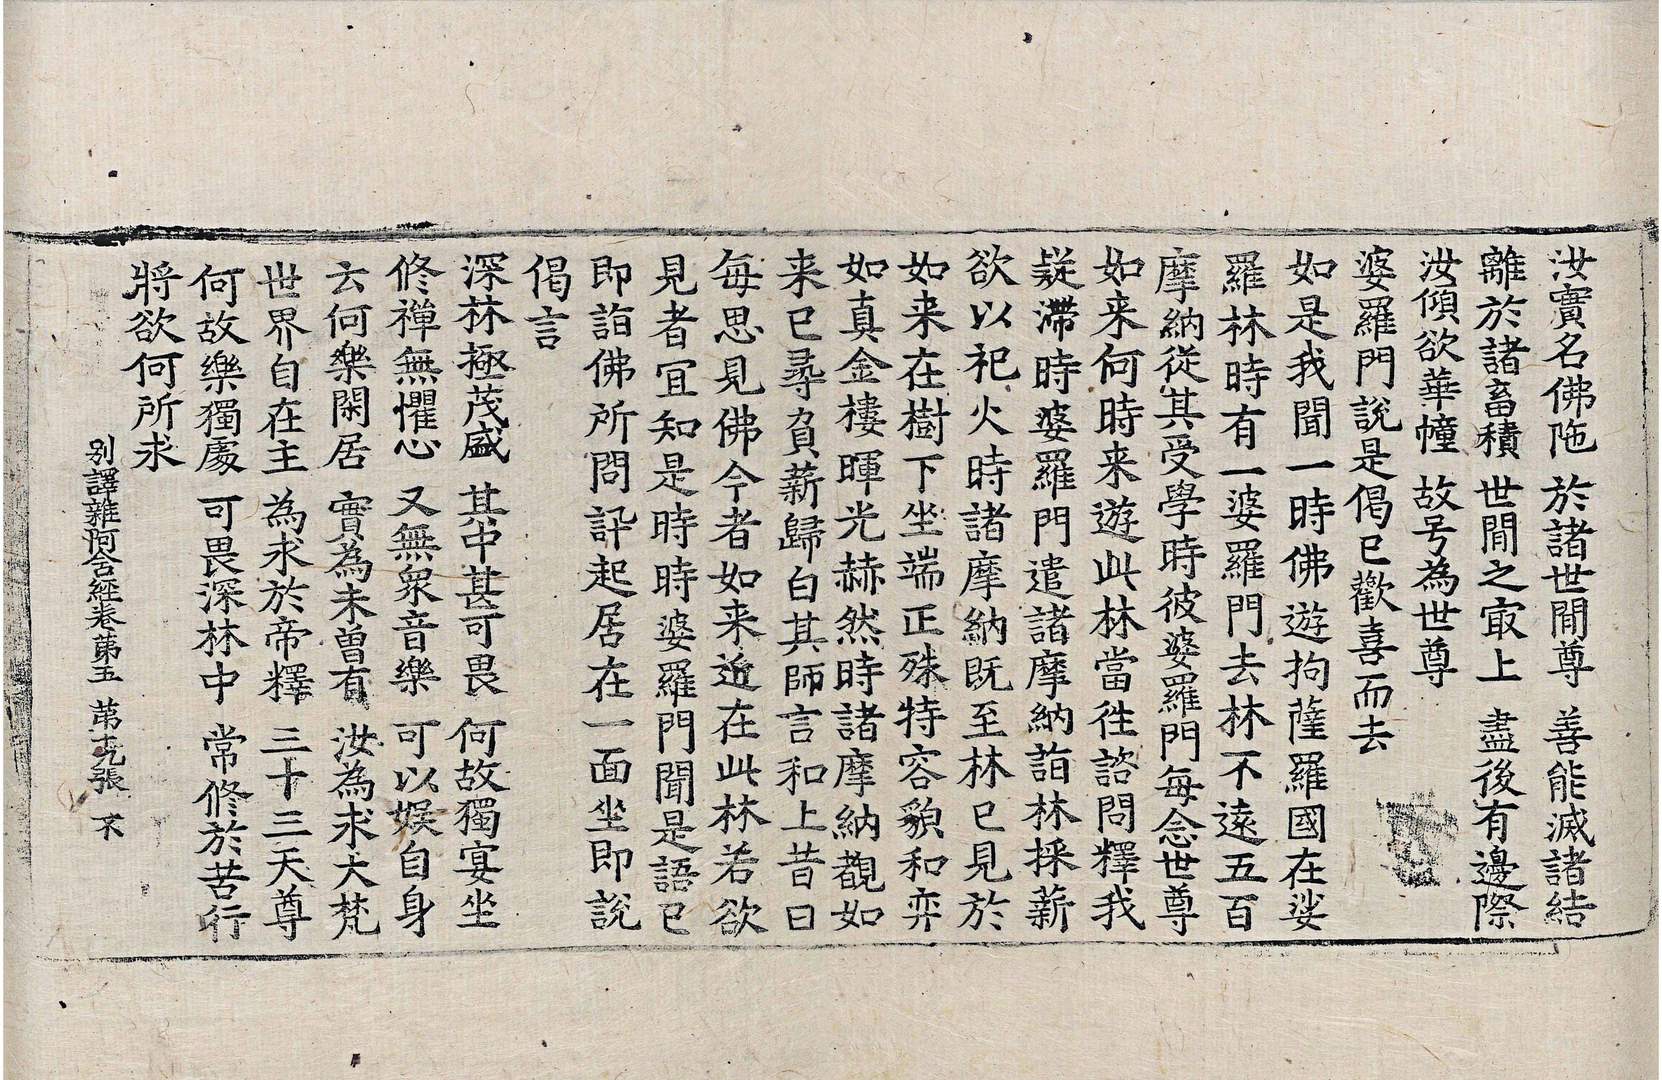 汝實名佛陁 於諸世間尊 善能滅諸結
離於諸畜積 世間之㝡上 盡後有邊際
汝傾欲華幢 故号為世尊
婆羅門說是偈已歡喜而去
如是我聞一時佛遊拘薩羅國在娑
羅林時有一婆羅門去林不遠五百
摩納從其受學時彼婆羅門每念世尊
如来何時来遊此林當徃諮問釋我
疑滯時婆羅門遣諸摩納詣林採薪
欲以祀火時諸摩納既至林已見於
如来在樹下坐端正殊特容貌和弈
如真金樓暉光赫然時諸摩納觀如
来已尋負薪歸白其師言和上昔日
每思見佛今者如来近在此林若欲
見者宜知是時時婆羅門聞是語已
即詣佛所問訊起居在一面坐即說
偈言
深林極茂盛 其中甚可畏 何故獨宴坐
修禪無懼心 又無衆音樂 可以娛自身
云何樂閑居 實為未曾有 汝為求大梵
世界自在主 為求於帝釋 三十三天尊
何故樂獨處 可畏深林中 常修於苦行
將欲何所求
别譯雜阿含經卷第五 第十九張 不